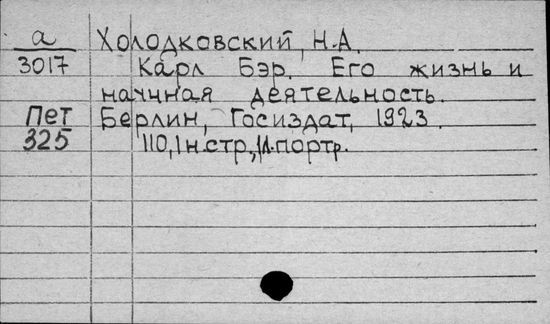 а Холодковский, Н.А.
3017 Карл Бэр. Его жизнь и
научная деятельность.
Пет Берлин, Госиздат, 1923.
325 110,1 н.стр.,1л.портр.